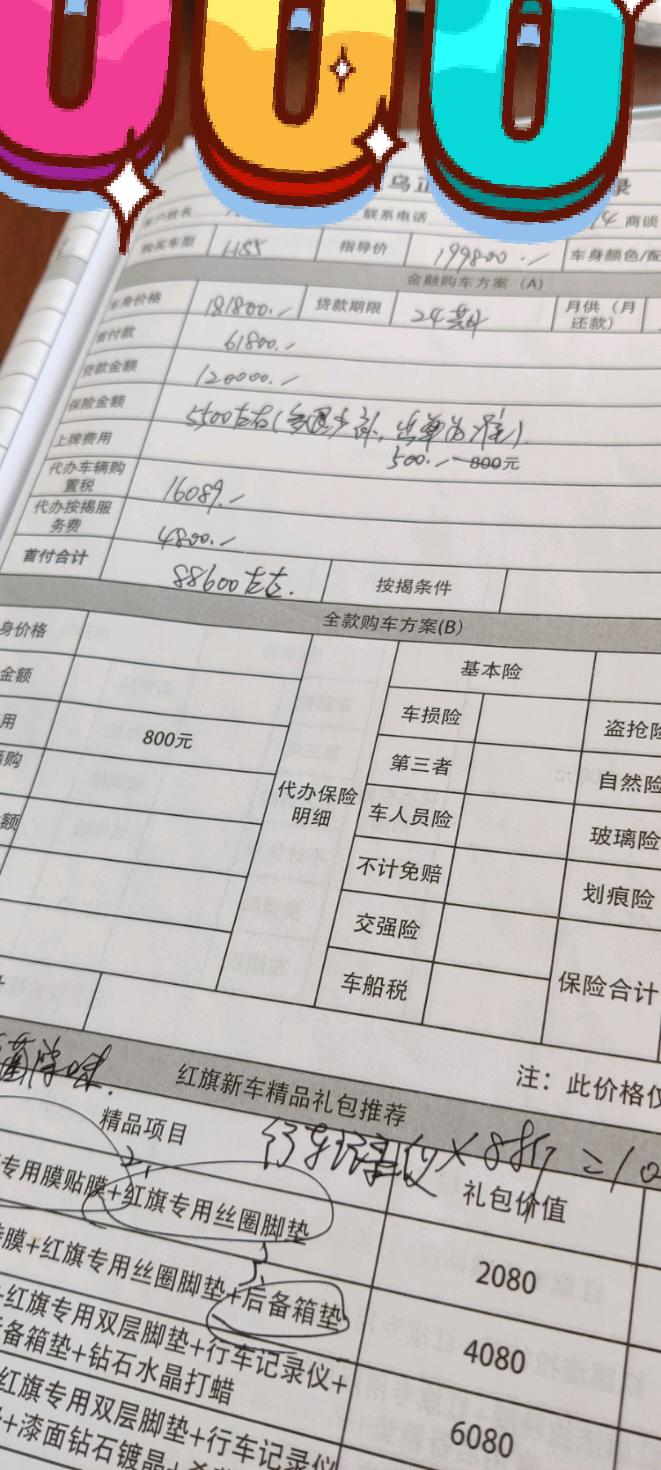 客户姓名 联系电话 商谈
购买车型 HS5 指导价 199800.- 车身颜色/配
金融购车方案（A）
车身价格 181800.- 贷款期限 24 月供（月还款）
首付款 61800.-
贷款金额 120000.-
保险金额 5500左右(多退少补，出单为准)
上牌费用 500.- 800元
代办车辆购置税 16089.-
代办按揭服务费 4800.-
首付合计 88600左右. 按揭条件
全款购车方案(B)
身价格 基本险
金额 车损险 盗抢险
用 800元 第三者 自然险
购 代办保险明细 车人员险 玻璃险
额 不计免赔 划痕险
交强险
车船税 保险合计
计
注：此价格仅
除味.
红旗新车精品礼包推荐
精品项目 行车记录仪×8折=10
礼包价值
专用膜贴膜+红旗专用丝圈脚垫 2080
膜+红旗专用丝圈脚垫+后备箱垫 4080
红旗专用双层脚垫+行车记录仪+
备箱垫+钻石水晶打蜡 6080
红旗专用双层脚垫+行车记录仪
+漆面钻石镀晶+